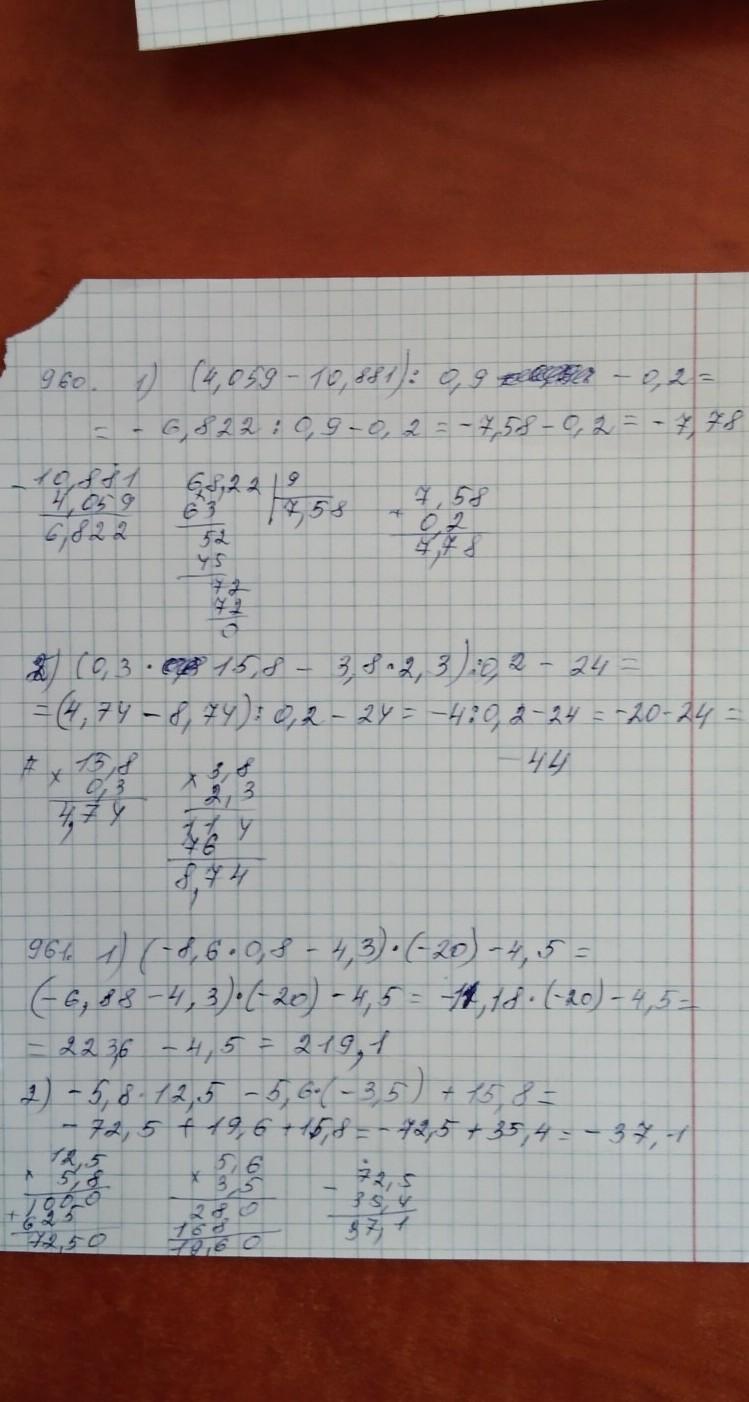 960. 1) (4,059 - 10,881) : 0,9 - 0,2 =
= - 6,822 : 0,9 - 0,2 = -7,58 - 0,2 = -7,78
- 10,881
4,059
6,822
68,22 | 9
63 7,58
52
45
72
72
0
7,58
+ 0,2
7,78
2) (0,3 · 15,8 - 3,8 · 2,3) : 0,2 - 24 =
= (4,74 - 8,74) : 0,2 - 24 = -4 : 0,2 - 24 = -20 - 24 =
-44
× 15,8
0,3
4,74
× 3,8
2,3
114
76
8,74
961. 1) (-8,6 · 0,8 - 4,3) · (-20) - 4,5 =
(-6,88 - 4,3) · (-20) - 4,5 = -11,18 · (-20) - 4,5 =
= 223,6 - 4,5 = 219,1
2) -5,8 · 12,5 - 5,6 · (-3,5) + 15,8 =
-72,5 + 19,6 + 15,8 = -72,5 + 35,4 = -37,1
× 12,5
5,8
1000
+ 625
72,50
× 5,6
3,5
280
168
19,60
- 72,5
35,4
37,1